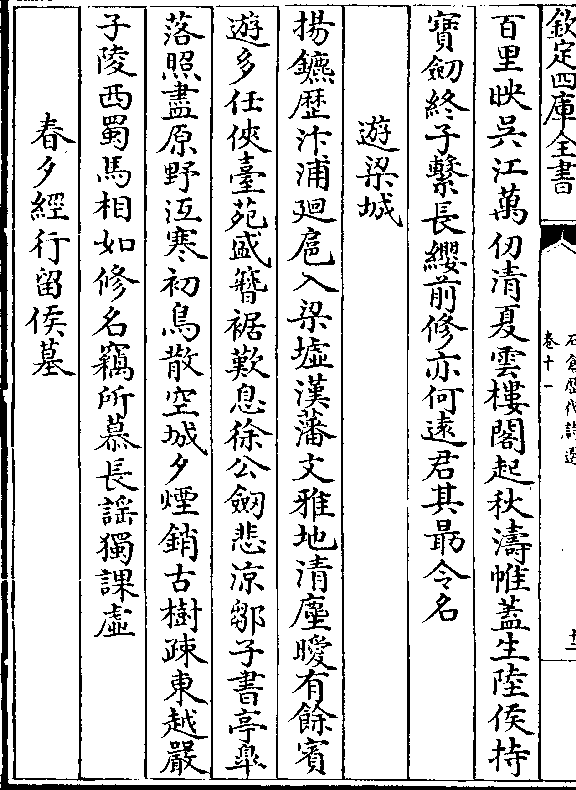 欽定四庫全書
石倉歴代詩選
卷十一
百里映呉江萬仞清夏雲樓閣起秋濤帷蓋生陸侯持
寳劒終子繫長纓前修亦何逺君其朂令名
遊梁城
揚鑣歴汴浦廻扈入梁墟漢藩文雅地清塵曖有餘賓
遊多任俠臺苑盛簪裾歎息徐公劒悲涼鄒子書亭臯
落照盡原野沍寒初鳥散空城夕煙銷古樹疎東越嚴
子陵西蜀馬相如修名竊所慕長謡獨課虛
春夕經行留侯墓